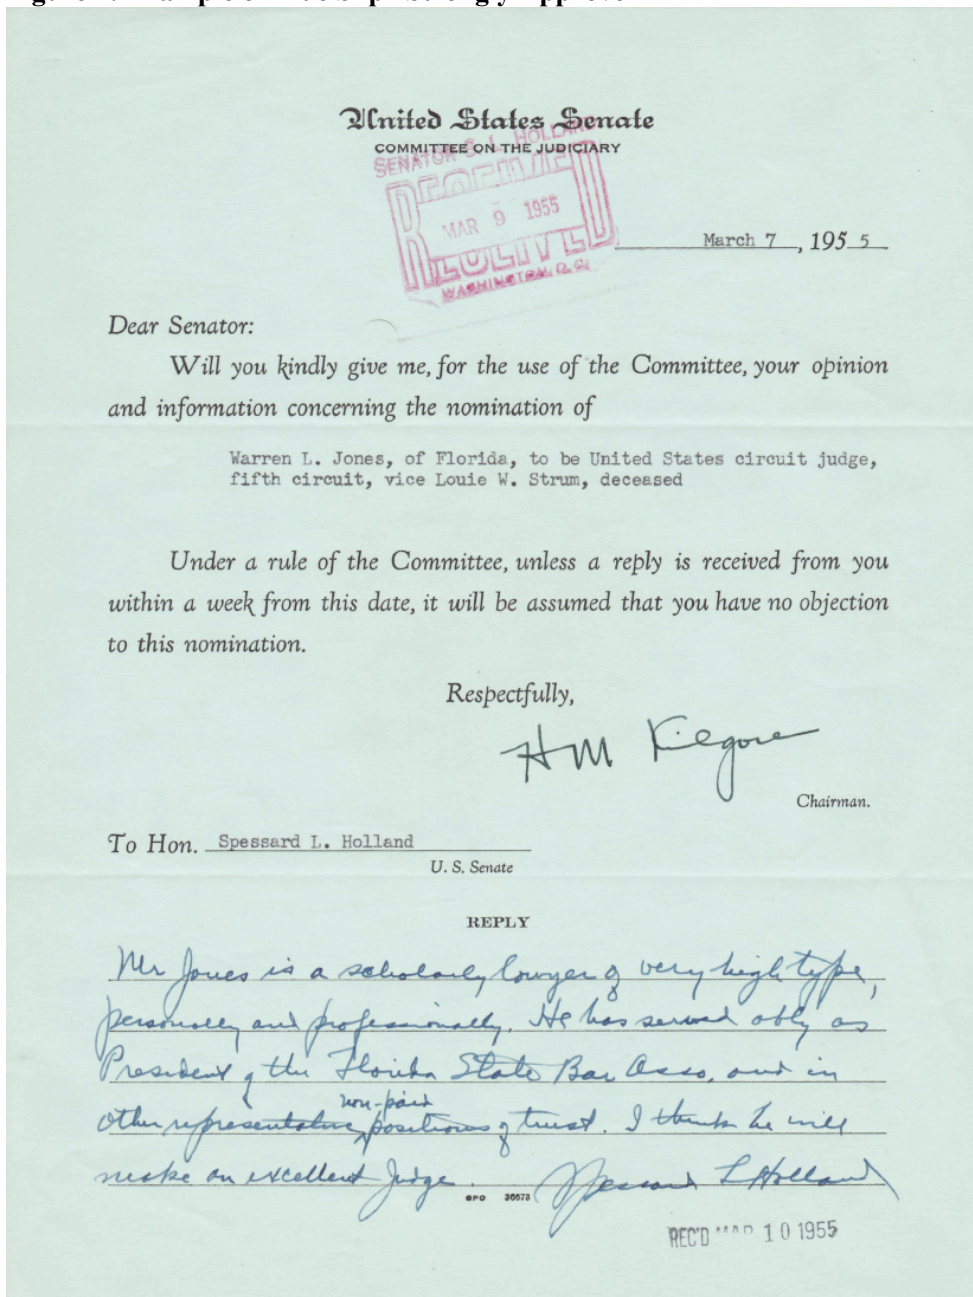 United States Senate
COMMITTEE ON THE JUDICIARY
SENATOR S. L. HOLLAND
RECEIVED
MAR 9 1955
RECEIVED
WASHINGTON, D. C.
March 7, 1955
Dear Senator:
Will you kindly give me, for the use of the Committee, your opinion
and information concerning the nomination of
Warren L. Jones, of Florida, to be United States circuit judge,
fifth circuit, vice Louie W. Strum, deceased
Under a rule of the Committee, unless a reply is received from you
within a week from this date, it will be assumed that you have no objection
to this nomination.
Respectfully,
H M Kilgore
Chairman.
To Hon. Spessard L. Holland
U. S. Senate
REPLY
Mr Jones is a scholarly lawyer of very high type,
personally and professionally. He has served ably as
President of the Florida State Bar Asso, and in
other representative non-paid positions of trust. I think he will
make an excellent Judge. Spessard L Holland
GPO 36673
REC'D MAR 10 1955